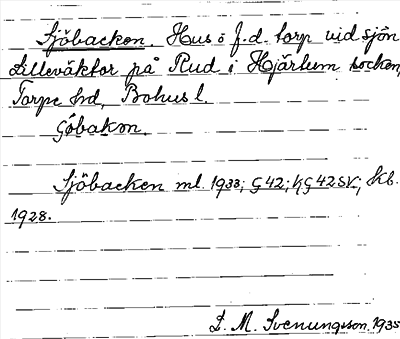 Sjöbacken. Hus o f.d. torp vid sjön
Lilleväktor på Rud i Hjärtum socken,
Torpe hd, Bohus l.
Sjöbacken ml. 1933; G42; SV; Kb.
1928.
D. M. Svenungsson 1935